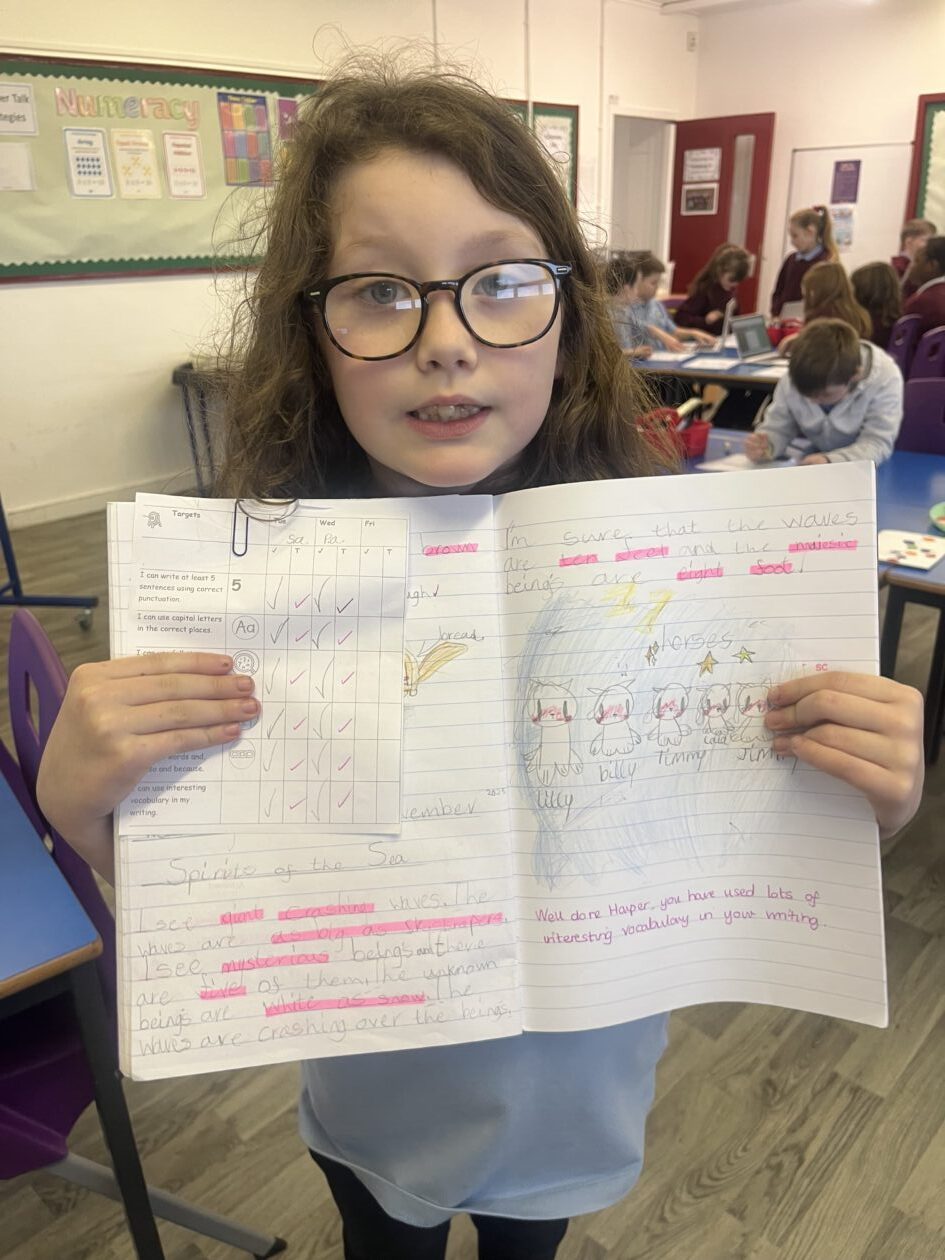 Numeracy
Targets
Tue
Wed
Fri
✓ T ✓ T ✓ T
I can write at least 5
sentences using correct
punctuation.
5
I can use capital letters
in the correct places.
Aa
words and
so and because.
I can use interesting
vocabulary in my
writing.
brown
bread
2025
ember
Spirits of the Sea
I see giant crashing waves. The
waves are as big as
I see mysterious beings and there
are five of them. The unknown
beings are white as snow. The
waves are crashing over the beings.
I'm sure that the waves
are ten feet and the
beings are eight foot.
horses
SC
Lilly
billy
Timmy
Well done Harper, you have used lots of
interesting vocabulary in your writing.